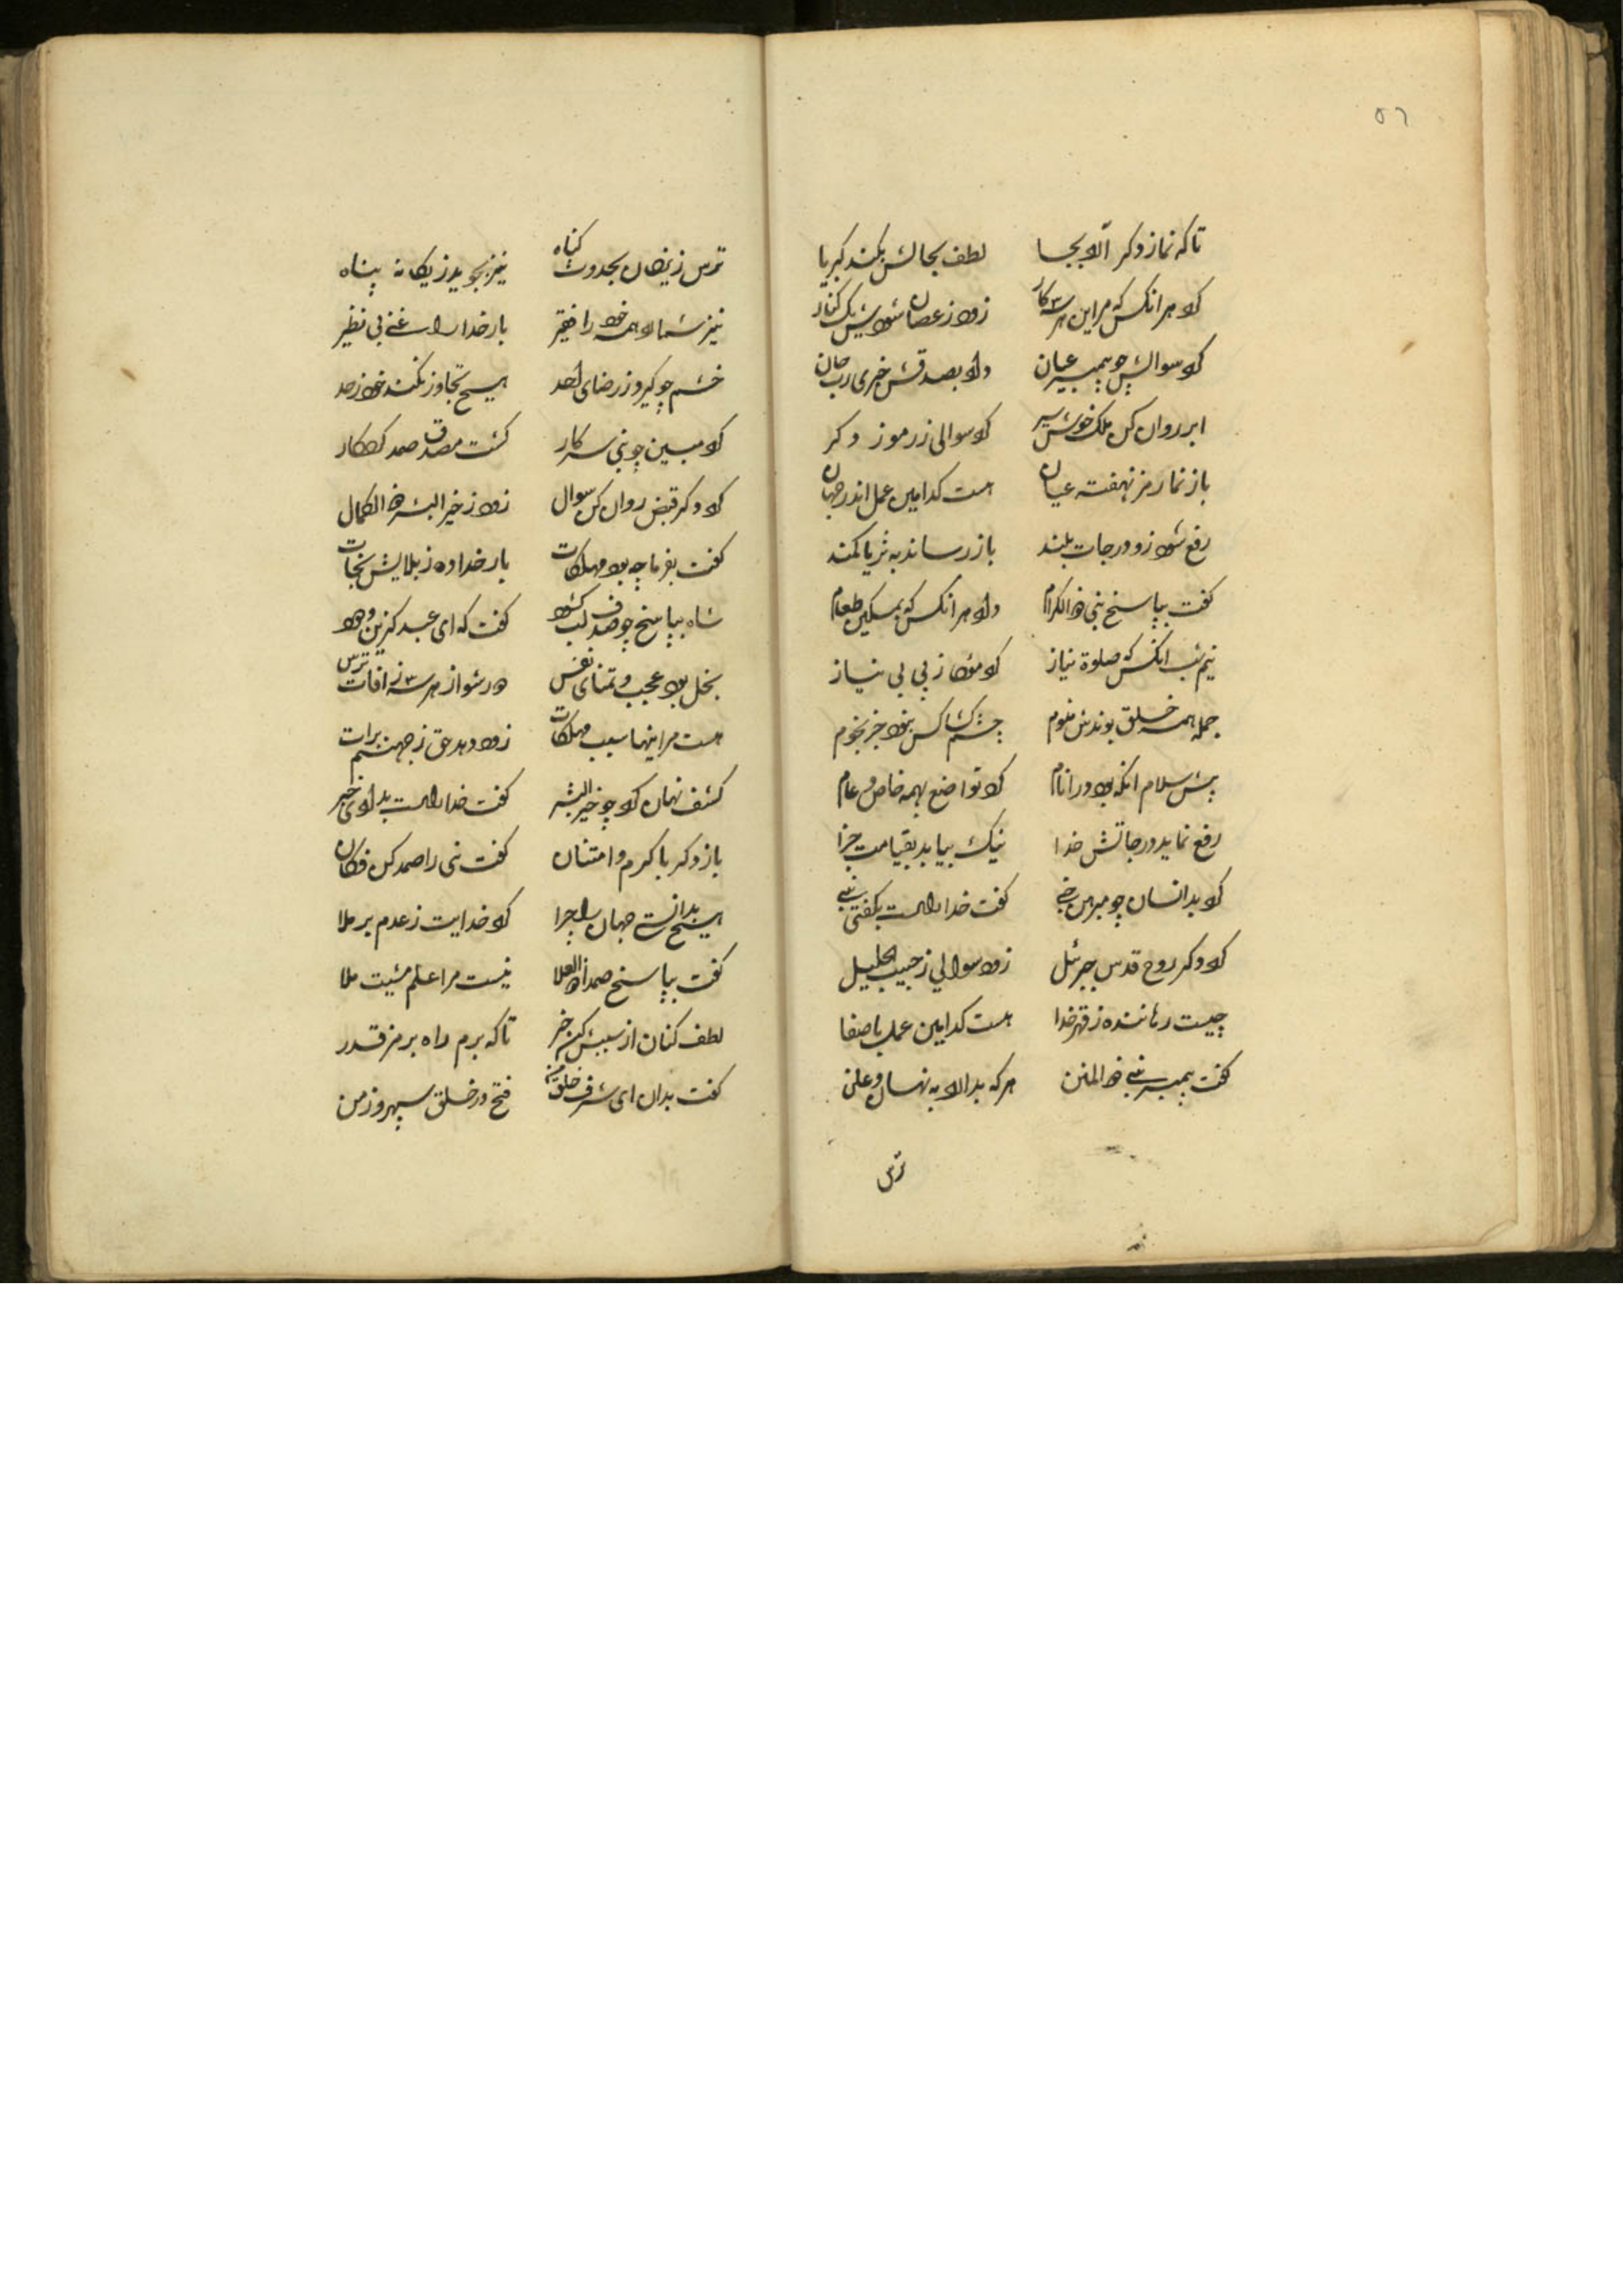 ٥٦
تاکه نماز دکر آلاد بجا لطف بجالش بکند کبریا
کرد هر انکس که مر این هر سه کار زود ز عصیان شود پس بر کنار
کرد سوالش چو پیمبر عیان داد بصدقش خبری
ابر روان کن ملک خوش سیر کرد سوالی ز رموز دکر
باز نما رمز نهفته عیان هست کدامین عمل اندر جهان
رفع شود زو درجات بلند باز رساند به ثریا کمند
کفت بپاسخ نبی ذو الکرام داد هر انکس که بمسکین طعام
نیم شب انکس که صلوة نیاز کرد مؤدا ز پی بی نیاز
جمله همه خلق بوندش منوم چشم کسی نبود جز نجوم
پیش سلام انکه بود در انام کرد تواضع بهمه خاص و عام
رفع نماید درجاتش خدا نیک بیابد بقیامت جزا
کرد بدانسان چو مبرهن نبی کفت خدا راست بکفتی نبی
کرد دکر روح قدس جبرئل زود سوالی ز حبیب جلیل
چیست رهاننده ز قهر خدا هست کدامین عمل باصفا
کفت پیمبر نبی ذو المنن هر که بدارد به نهان و علن
ترس
ترس ز یزدان بحدوث کناه نیز بجوید ز یکانه پناه
نیز شمارد همه خود را فقیر بار خدا را غنی بی نظیر
خشم چو کیرد ز رضای احد هیچ تجاوز نکند خود ز حد
کرد مبین چو نبی سه کار کشت مصدق صمد کردکار
کرد دکر قبض روان کن سوال زود ز خیر البشر ذو الکمال
کفت بفرما چه بود مهلکات بار خدا ده ز بلایش نجات
شاه بپاسخ چو صدف لب کشود کفت که ای عبد کزین ودود
بخل بود عجب و تمنای نفس دور شو از هر سه ز افات ترس
هست مر اینها سبب مهلکات زود دهد حق ز جهنم برات
کشف نهان کرد چو خیر البشر کفت خدا راست بدادی خبر
باز دکر با کرم و امتنان کفت نبی را صمد کن فکان
هیچ بدانی جهان را چرا کرد خدایت ز عدم بر ملا
کفت بپاسخ صمد ذو العلا نیست مرا علم مشیت ملا
لطف کنان از سببش کن خبر تاکه برم راه برمز قدر
کفت بدان ای شرف خلق من فتح در خلق سپهر و زمن